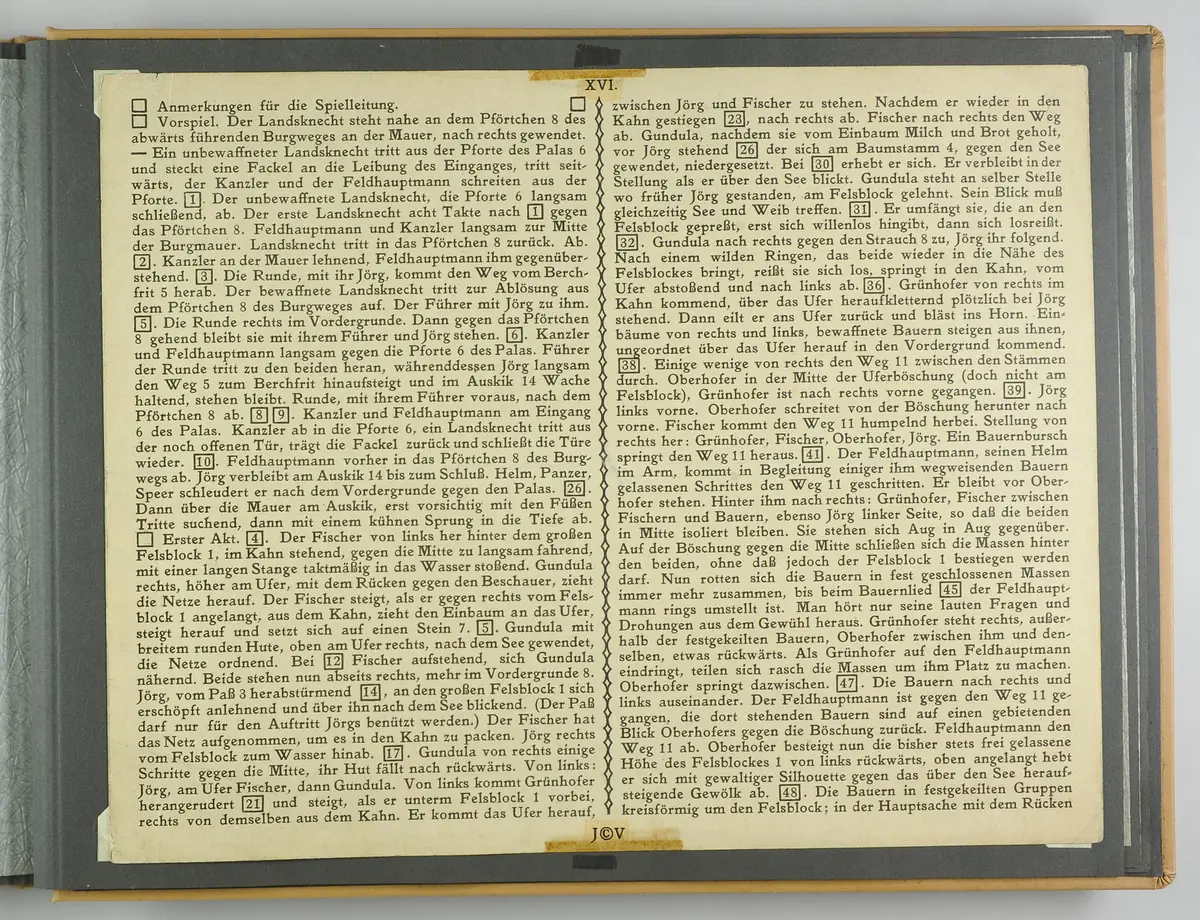 XVI.
☐ Anmerkungen für die Spielleitung. ☐
☐ Vorspiel. Der Landsknecht steht nahe an dem Pförtchen 8 des
abwärts führenden Burgweges an der Mauer, nach rechts gewendet.
— Ein unbewaffneter Landsknecht tritt aus der Pforte des Palas 6
und steckt eine Fackel an die Leibung des Einganges, tritt seit-
wärts, der Kanzler und der Feldhauptmann schreiten aus der
Pforte. 1. Der unbewaffnete Landsknecht, die Pforte 6 langsam
schließend, ab. Der erste Landsknecht acht Takte nach 1 gegen
das Pförtchen 8. Feldhauptmann und Kanzler langsam zur Mitte
der Burgmauer. Landsknecht tritt in das Pförtchen 8 zurück. Ab.
2. Kanzler an der Mauer lehnend, Feldhauptmann ihm gegenüber-
stehend. 3. Die Runde, mit ihr Jörg, kommt den Weg vom Berch-
frit 5 herab. Der bewaffnete Landsknecht tritt zur Ablösung aus
dem Pförtchen 8 des Burgweges auf. Der Führer mit Jörg zu ihm.
5. Die Runde rechts im Vordergrunde. Dann gegen das Pförtchen
8 gehend bleibt sie mit ihrem Führer und Jörg stehen. 6. Kanzler
und Feldhauptmann langsam gegen die Pforte 6 des Palas. Führer
der Runde tritt zu den beiden heran, währenddessen Jörg langsam
den Weg 5 zum Berchfrit hinaufsteigt und im Auskik 14 Wache
haltend, stehen bleibt. Runde, mit ihrem Führer voraus, nach dem
Pförtchen 8 ab. 8 9. Kanzler und Feldhauptmann am Eingang
6 des Palas. Kanzler ab in die Pforte 6, ein Landsknecht tritt aus
der noch offenen Tür, trägt die Fackel zurück und schließt die Türe
wieder. 10. Feldhauptmann vorher in das Pförtchen 8 des Burg-
wegs ab. Jörg verbleibt am Auskik 14 bis zum Schluß. Helm, Panzer,
Speer schleudert er nach dem Vordergrunde gegen den Palas. 26.
Dann über die Mauer am Auskik, erst vorsichtig mit den Füßen
Tritte suchend, dann mit einem kühnen Sprung in die Tiefe ab.
☐ Erster Akt. 4. Der Fischer von links her hinter dem großen
Felsblock 1, im Kahn stehend, gegen die Mitte zu langsam fahrend,
mit einer langen Stange taktmäßig in das Wasser stoßend. Gundula
rechts, höher am Ufer, mit dem Rücken gegen den Beschauer, zieht
die Netze herauf. Der Fischer steigt, als er gegen rechts vom Fels-
block 1 angelangt, aus dem Kahn, zieht den Einbaum an das Ufer,
steigt herauf und setzt sich auf einen Stein 7. 5. Gundula mit
breitem runden Hute, oben am Ufer rechts, nach dem See gewendet,
die Netze ordnend. Bei 12 Fischer aufstehend, sich Gundula
nähernd. Beide stehen nun abseits rechts, mehr im Vordergrunde 8.
Jörg, vom Paß 3 herabstürmend 14, an den großen Felsblock 1 sich
erschöpft anlehnend und über ihn nach dem See blickend. (Der Paß
darf nur für den Auftritt Jörgs benützt werden.) Der Fischer hat
das Netz aufgenommen, um es in den Kahn zu packen. Jörg rechts
vom Felsblock zum Wasser hinab. 17. Gundula von rechts einige
Schritte gegen die Mitte, ihr Hut fällt nach rückwärts. Von links:
Jörg, am Ufer Fischer, dann Gundula. Von links kommt Grünhofer
herangerudert 21 und steigt, als er unterm Felsblock 1 vorbei,
rechts von demselben aus dem Kahn. Er kommt das Ufer herauf,
zwischen Jörg und Fischer zu stehen. Nachdem er wieder in den
Kahn gestiegen 23, nach rechts ab. Fischer nach rechts den Weg
ab. Gundula, nachdem sie vom Einbaum Milch und Brot geholt,
vor Jörg stehend 26 der sich am Baumstamm 4, gegen den See
gewendet, niedergesetzt. Bei 30 erhebt er sich. Er verbleibt in der
Stellung als er über den See blickt. Gundula steht an selber Stelle
wo früher Jörg gestanden, am Felsblock gelehnt. Sein Blick muß
gleichzeitig See und Weib treffen. 31. Er umfängt sie, die an den
Felsblock gepreßt, erst sich willenlos hingibt, dann sich losreißt.
32. Gundula nach rechts gegen den Strauch 8 zu, Jörg ihr folgend.
Nach einem wilden Ringen, das beide wieder in die Nähe des
Felsblockes bringt, reißt sie sich los, springt in den Kahn, vom
Ufer abstoßend und nach links ab. 36. Grünhofer von rechts im
Kahn kommend, über das Ufer heraufkletternd plötzlich bei Jörg
stehend. Dann eilt er ans Ufer zurück und bläst ins Horn. Ein-
bäume von rechts und links, bewaffnete Bauern steigen aus ihnen,
ungeordnet über das Ufer herauf in den Vordergrund kommend.
38. Einige wenige von rechts den Weg 11 zwischen den Stämmen
durch. Oberhofer in der Mitte der Uferböschung (doch nicht am
Felsblock), Grünhofer ist nach rechts vorne gegangen. 39. Jörg
links vorne. Oberhofer schreitet von der Böschung herunter nach
vorne. Fischer kommt den Weg 11 humpelnd herbei. Stellung von
rechts her: Grünhofer, Fischer, Oberhofer, Jörg. Ein Bauernbursch
springt den Weg 11 heraus. 41. Der Feldhauptmann, seinen Helm
im Arm, kommt in Begleitung einiger ihm wegweisenden Bauern
gelassenen Schrittes den Weg 11 geschritten. Er bleibt vor Ober-
hofer stehen. Hinter ihm nach rechts: Grünhofer, Fischer zwischen
Fischern und Bauern, ebenso Jörg linker Seite, so daß die beiden
in Mitte isoliert bleiben. Sie stehen sich Aug in Aug gegenüber.
Auf der Böschung gegen die Mitte schließen sich die Massen hinter
den beiden, ohne daß jedoch der Felsblock 1 bestiegen werden
darf. Nun rotten sich die Bauern in fest geschlossenen Massen
immer mehr zusammen, bis beim Bauernlied 45 der Feldhaupt-
mann rings umstellt ist. Man hört nur seine lauten Fragen und
Drohungen aus dem Gewühl heraus. Grünhofer steht rechts, außer-
halb der festgekeilten Bauern, Oberhofer zwischen ihm und den-
selben, etwas rückwärts. Als Grünhofer auf den Feldhauptmann
eindringt, teilen sich rasch die Massen um ihm Platz zu machen.
Oberhofer springt dazwischen. 47. Die Bauern nach rechts und
links auseinander. Der Feldhauptmann ist gegen den Weg 11 ge-
gangen, die dort stehenden Bauern sind auf einen gebietenden
Blick Oberhofers gegen die Böschung zurück. Feldhauptmann den
Weg 11 ab. Oberhofer besteigt nun die bisher stets frei gelassene
Höhe des Felsblockes 1 von links rückwärts, oben angelangt hebt
er sich mit gewaltiger Silhouette gegen das über den See herauf-
steigende Gewölk ab. 48. Die Bauern in festgekeilten Gruppen
kreisförmig um den Felsblock; in der Hauptsache mit dem Rücken
J©V